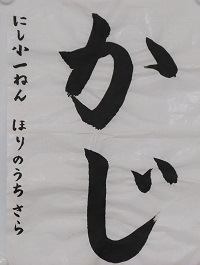 かじ
にし小一ねん ほりのうち さら